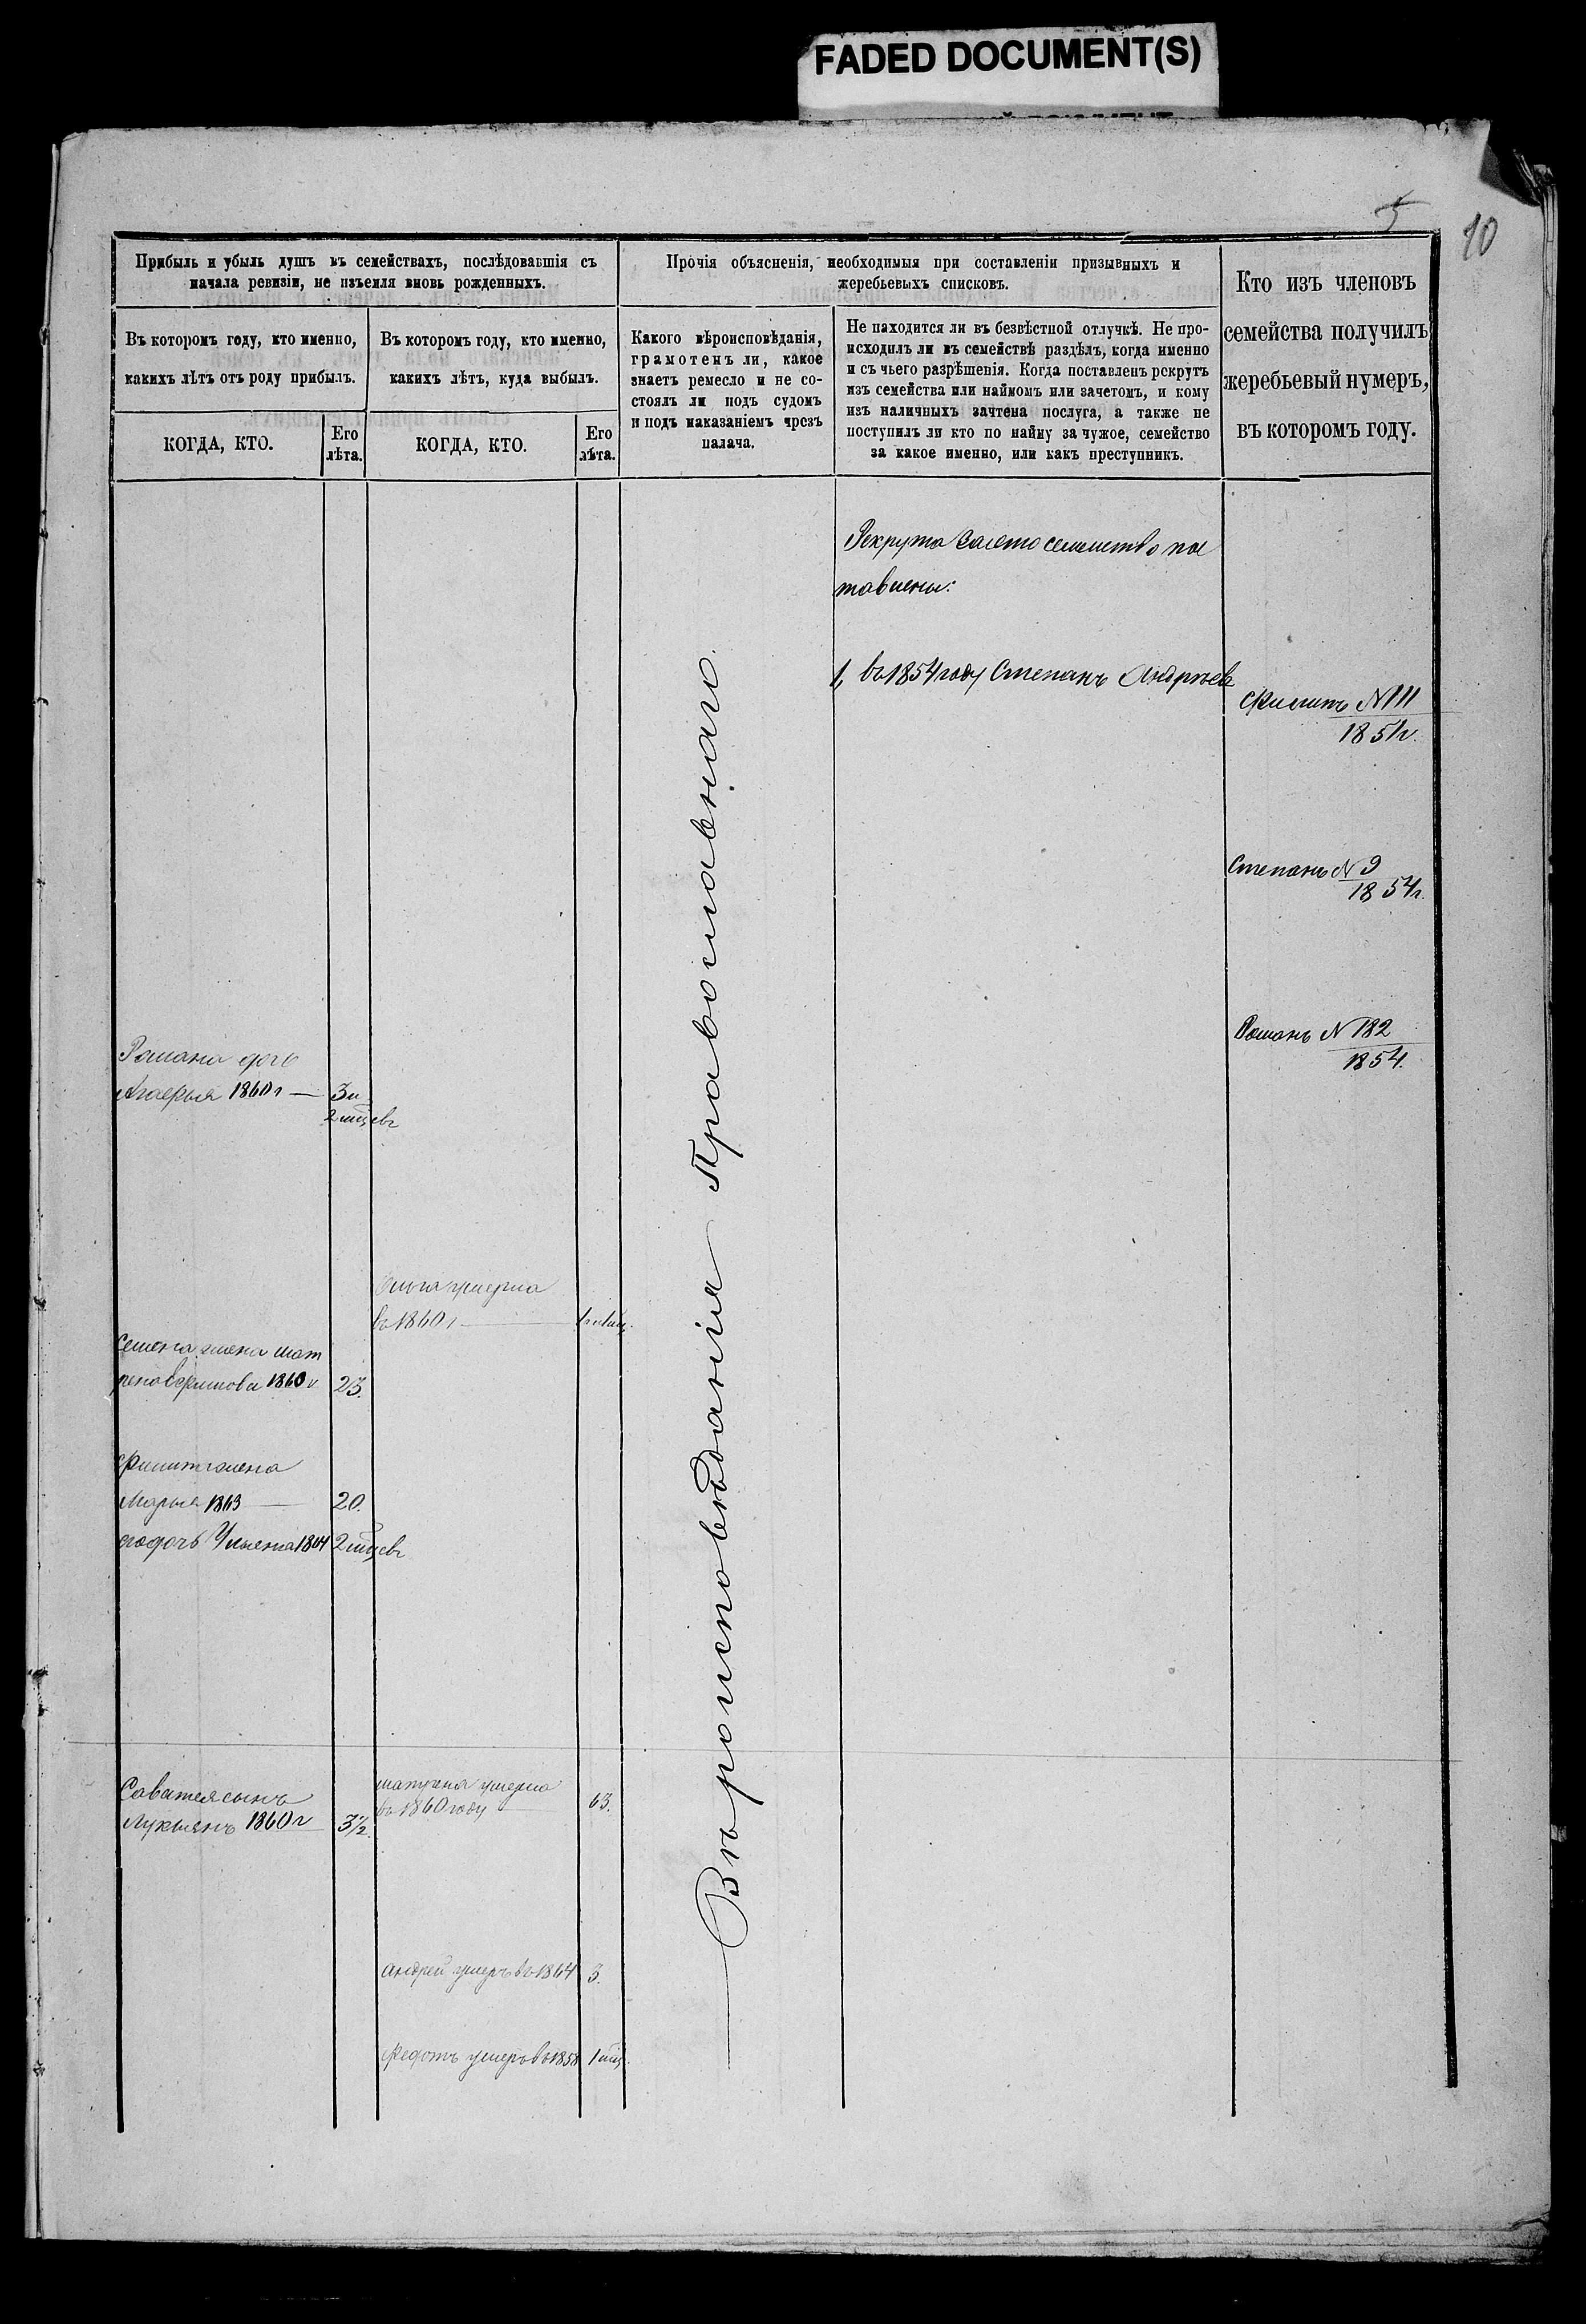 FADED DOCUMENT(S)
5
10
Прибыль и убыль душъ въ семействахъ, послѣдовавшія съ
начала ревизіи, не изъемля вновь рожденныхъ.
Прочія объясненія, необходимыя при составленіи призывныхъ и
жеребьевыхъ списковъ.
Кто изъ членовъ
семейства получилъ
жеребьевый нумеръ,
въ которомъ году.
Въ которомъ году, кто именно,
какихъ лѣтъ отъ роду прибылъ.
Въ которомъ году, кто именно,
какихъ лѣтъ, куда выбылъ.
Какого вѣроисповѣданія,
грамотенъ ли, какое
знаетъ ремесло и не со-
стоялъ ли подъ судомъ
и подъ наказаніемъ чрезъ
палача.
Не находится ли въ безвѣстной отлучкѣ. Не про-
исходилъ ли въ семействѣ раздѣлъ, когда именно
и съ чьего разрѣшенія. Когда поставленъ рекрутъ
изъ семейства или наймомъ или зачетомъ, и кому
изъ наличныхъ зачтена послуга, а также не
поступилъ ли кто по найму за чужое, семейство
за какое именно, или какъ преступникъ.
КОГДА, КТО.
Его
лѣта.
КОГДА, КТО.
Его
лѣта.
Рекрута
тавлены:
1, въ 1854 году Степанъ Андреевъ
Филипъ N 111
185
Степанъ N 9
1854 г.
Романъ N 182
1854.
Романа дочь
Агафья 1860 г — 3 и
2 мѣцевъ
умерла
въ 1860 г
Семена жена Мат
рена 1860 г 23.
жена
Марья 1863 — 20.
его дочь Ульяна 1864 2 мѣцевъ
Вѣроисповѣданія Православнаго.
Саватея сынъ
Лукьянъ 1860 г 3½.
Матрена умерла
въ 1860 году — 63.
Андрей умеръ въ 1864 3.
Федотъ умеръ въ 1858 1 мѣц.